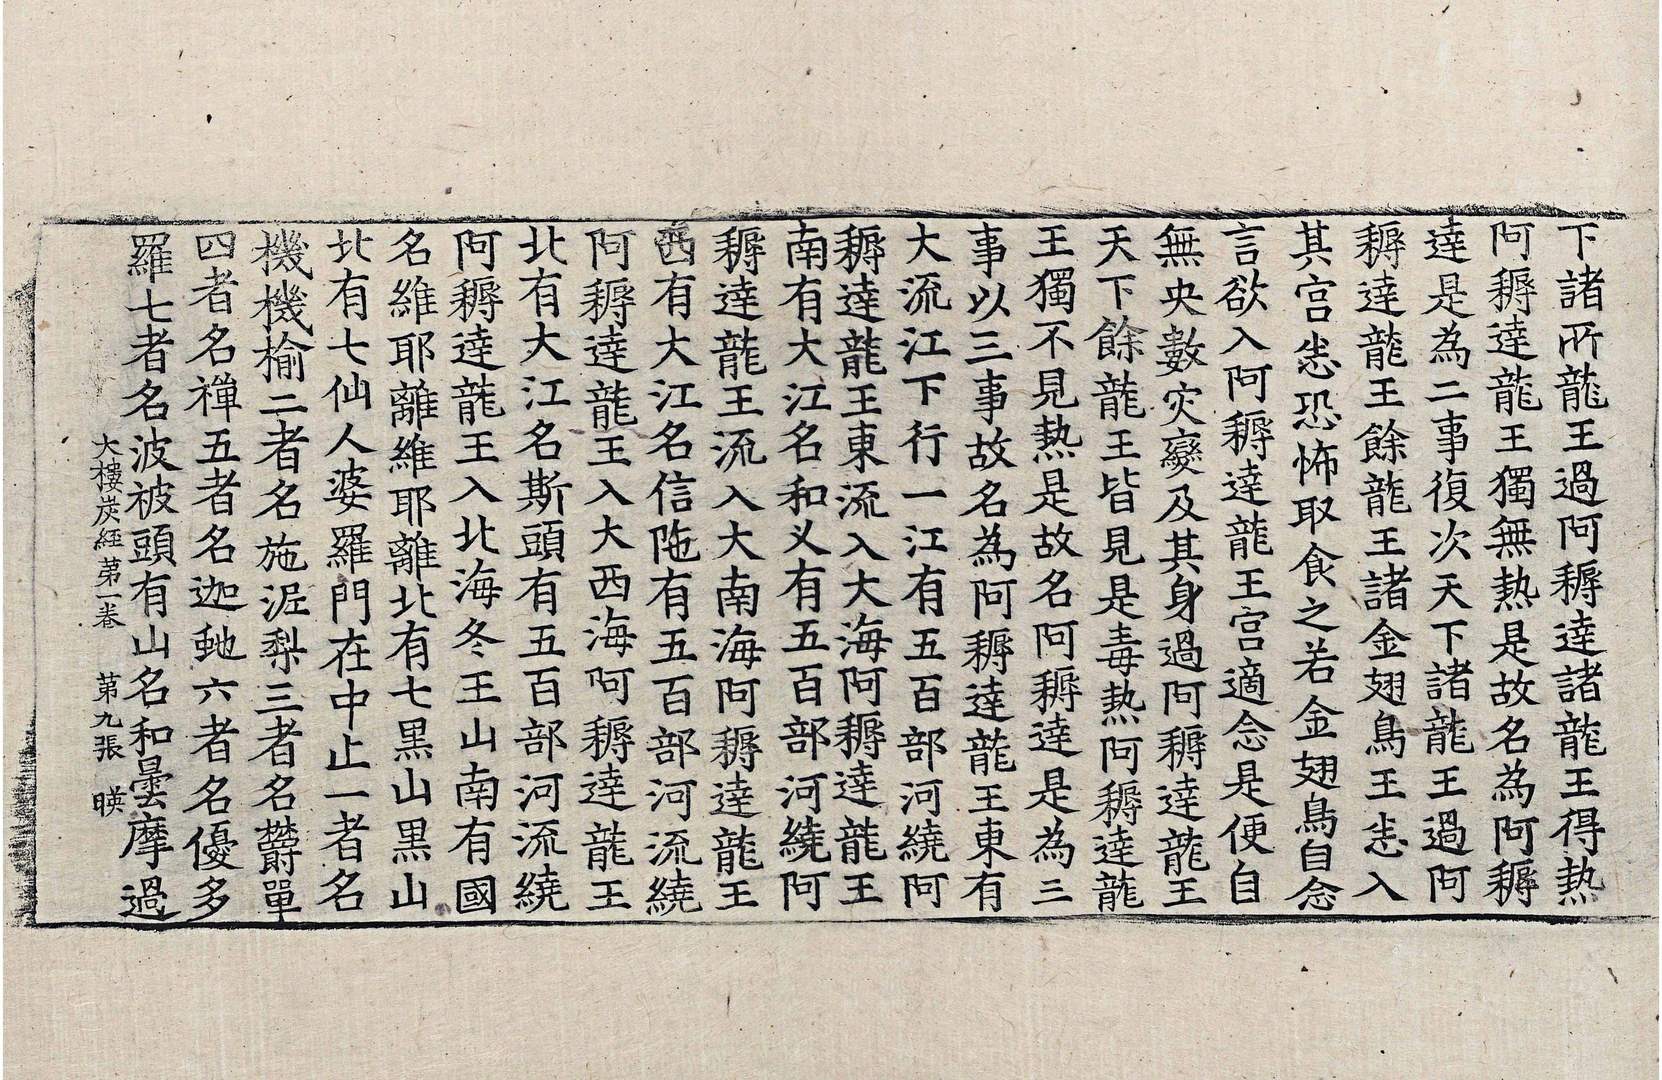 下諸所龍王過阿耨達諸龍王得熱
阿耨達龍王獨無熱是故名為阿耨
達是為二事復次天下諸龍王過阿
耨達龍王餘龍王諸金翅鳥王恚入
其宮恚恐怖取食之若金翅鳥自念
言欲入阿耨達龍王宮適念是便自
無央數灾變及其身過阿耨達龍王
天下餘龍王皆見是毒熱阿耨達龍
王獨不見熱是故名阿耨達是為三
事以三事故名為阿耨達龍王東有
大流江下行一江有五百部河繞阿
耨達龍王東流入大海阿耨達龍王
南有大江名和叉有五百部河繞阿
耨達龍王流入大南海阿耨達龍王
西有大江名信陁有五百部河流繞
阿耨達龍王入大西海阿耨達龍王
北有大江名斯頭有五百部河流繞
阿耨達龍王入北海冬王山南有國
名維耶離維耶離北有七黒山黒山
北有七仙人婆羅門在中止一者名
機機榆二者名施泥梨三者名欝單
四者名禪五者名迦虵六者名優多
羅七者名波被頭有山名和曇摩過
大樓炭經第一卷 第九張 暎